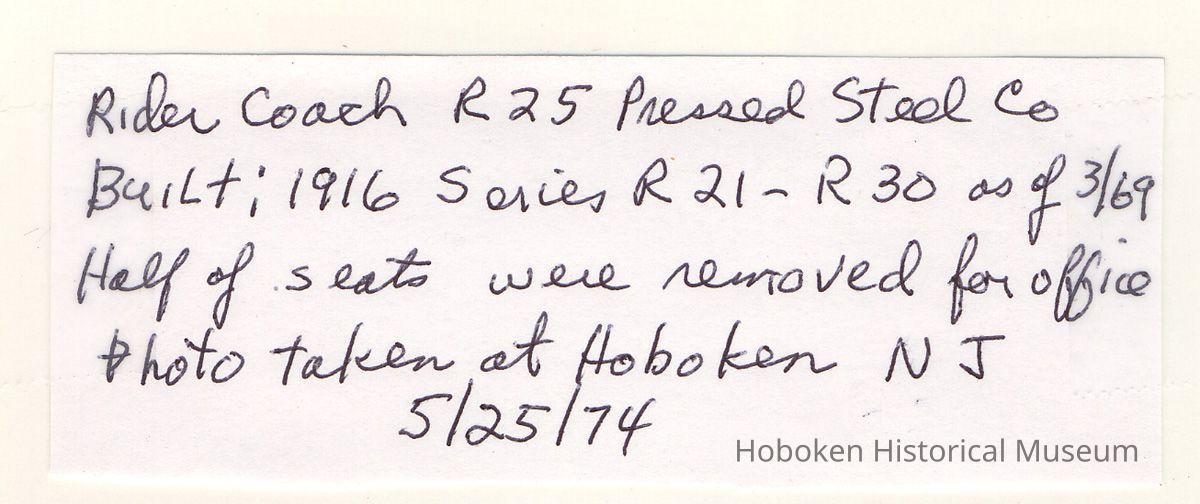 Rider Coach R25 Pressed Steel Co
Built; 1916 Series R21-R30 as of 3/69
Half of seats were removed for office
Photo taken at Hoboken NJ
5/25/74
Hoboken Historical Museum